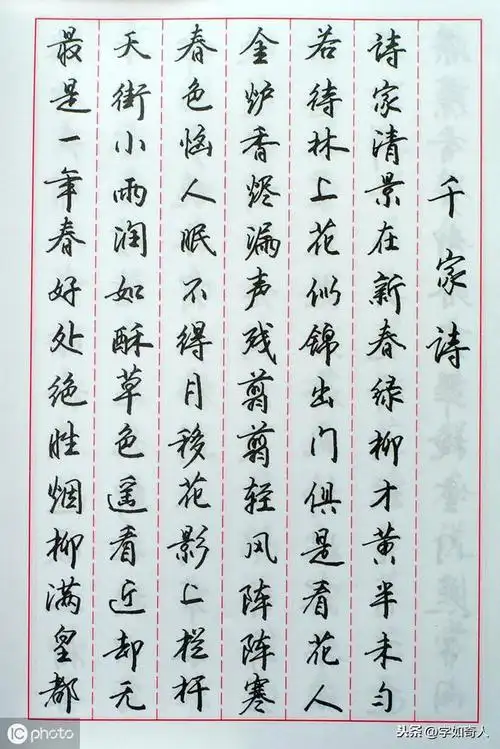 千家诗
诗家清景在新春绿柳才黄半未匀
若待林上花似锦出门俱是看花人
金炉香烬漏声残翦翦轻风阵阵寒
春色恼人眠不得月移花影上栏杆
天街小雨润如酥草色遥看近却无
最是一年春好处绝胜烟柳满皇都
iC photo
头条@字如奇人